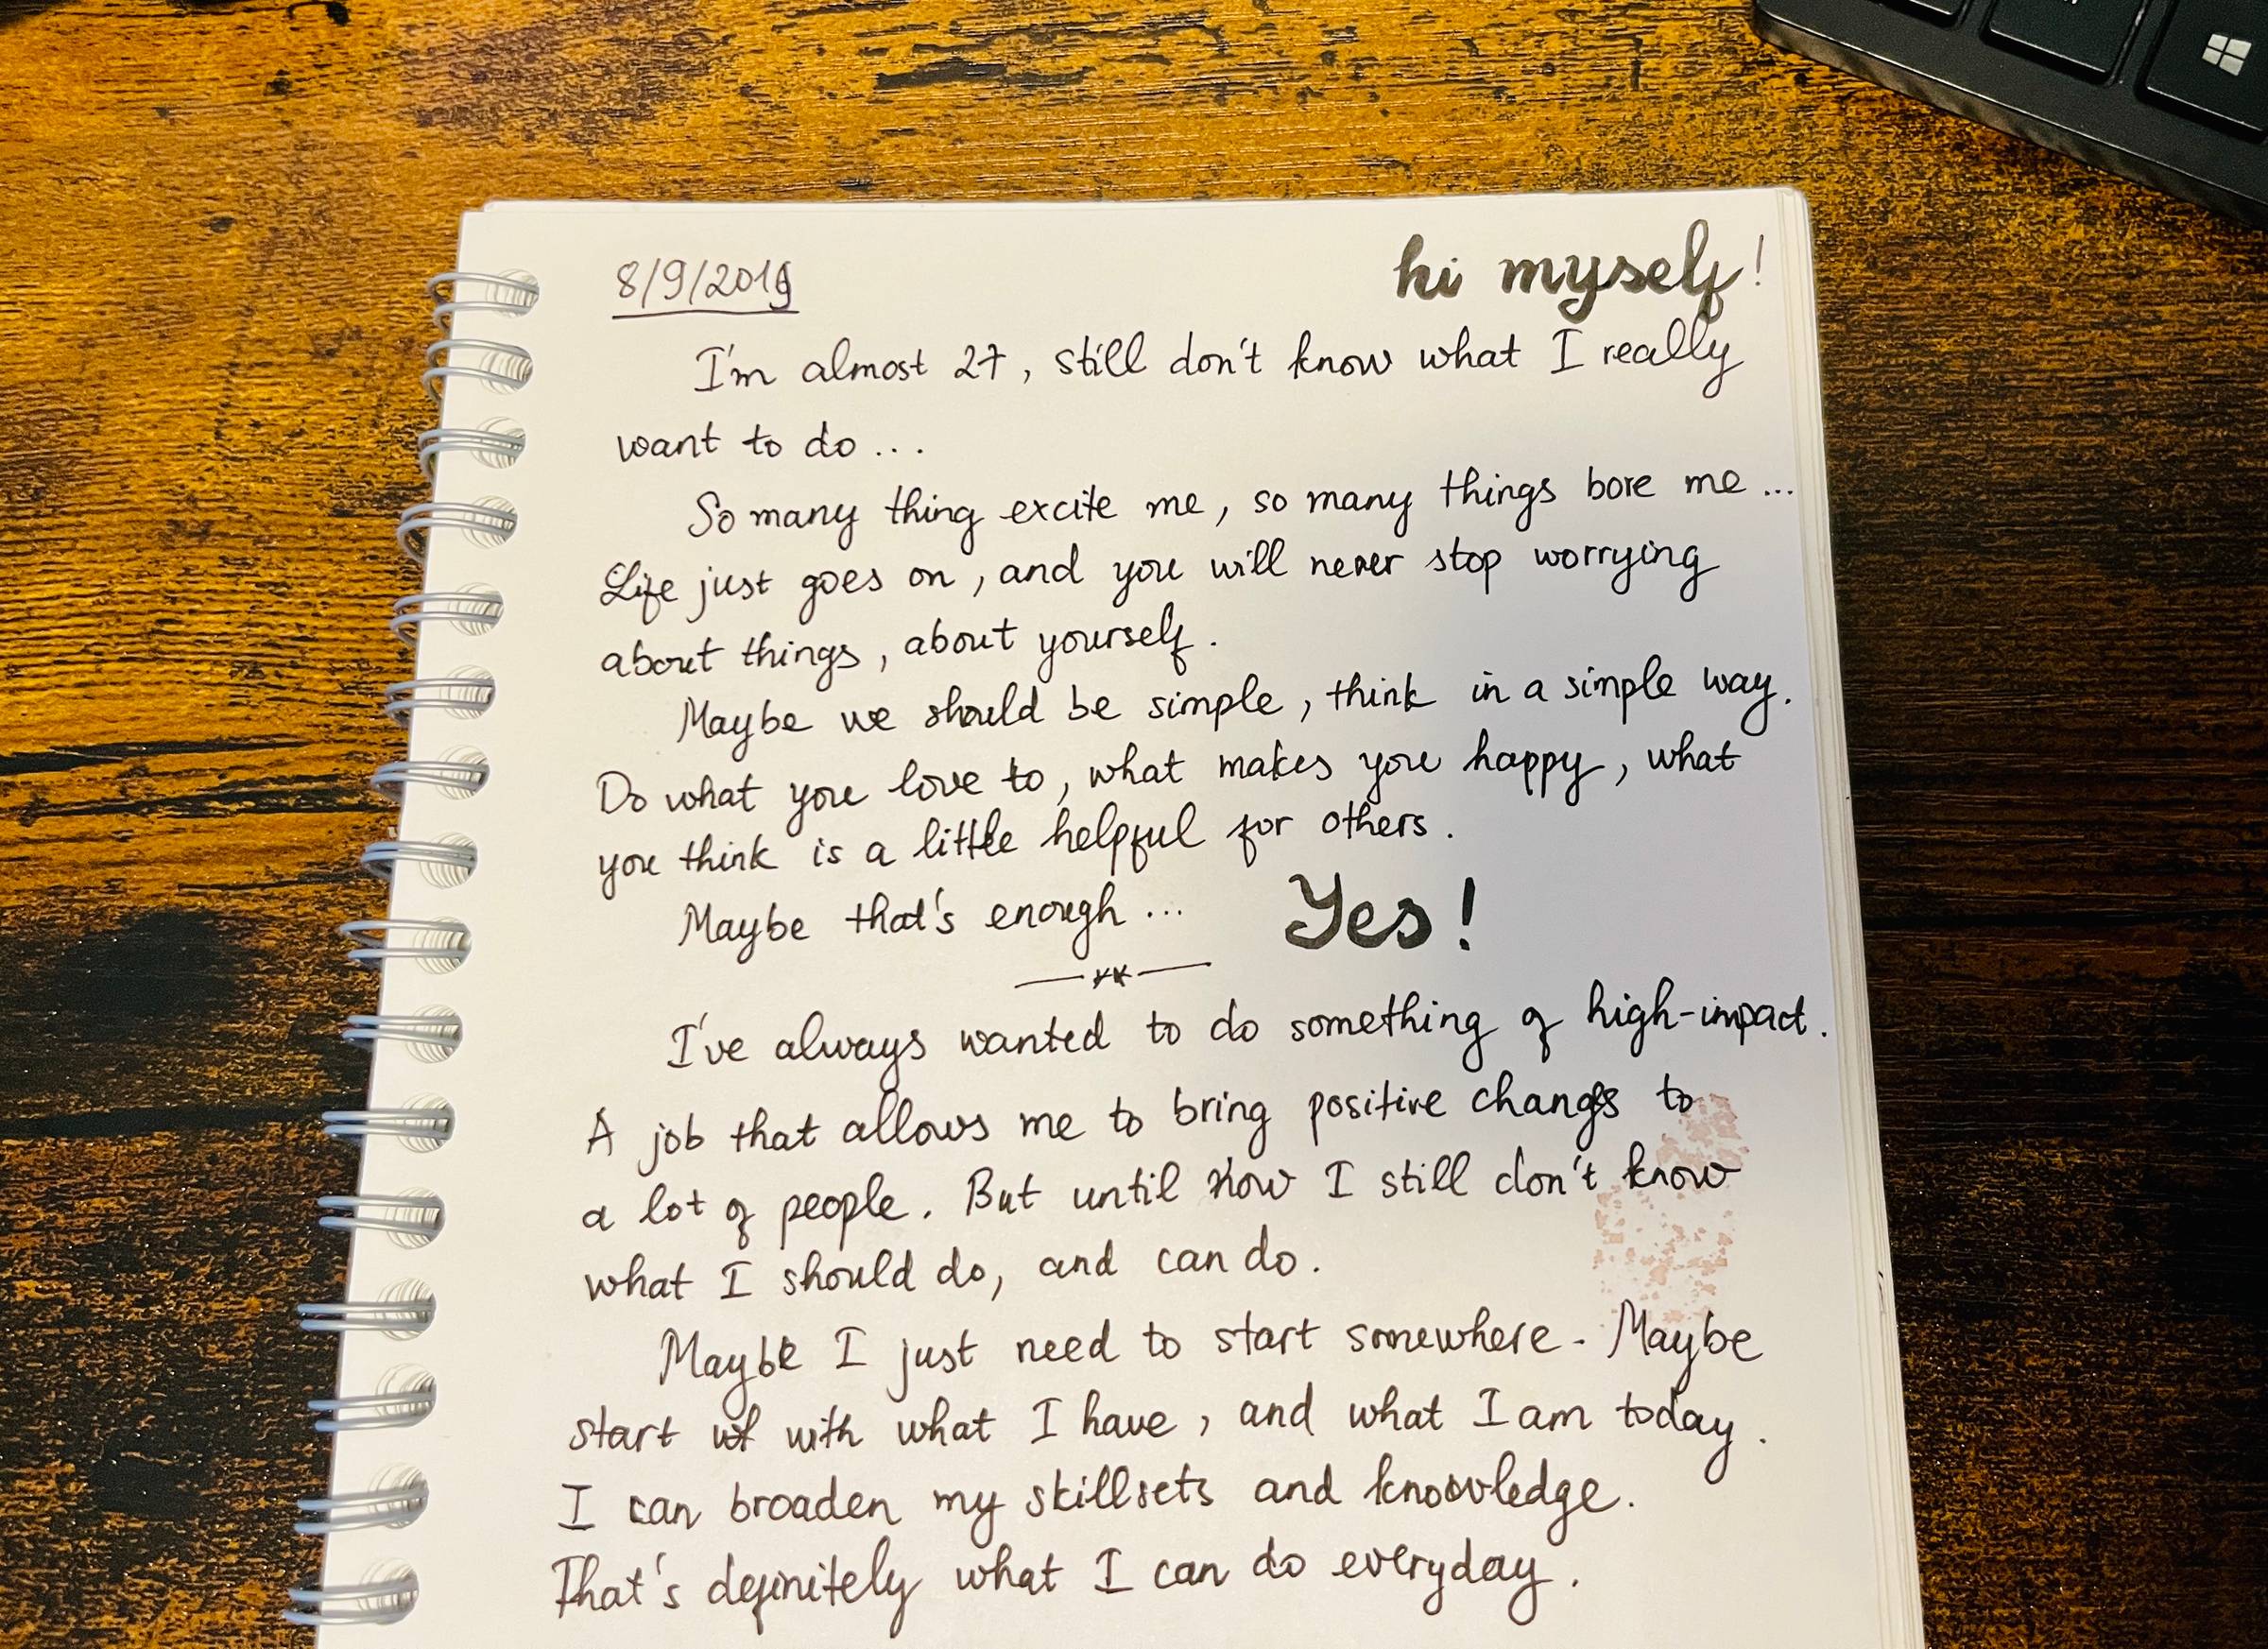 8/9/2019
hi myself!
I'm almost 27, still don't know what I really
want to do...
So many thing excite me, so many things bore me...
Life just goes on, and you will never stop worrying
about things, about yourself.
Maybe we should be simple, think in a simple way.
Do what you love to, what makes you happy, what
you think is a little helpful for others.
Maybe that's enough... Yes!
I've always wanted to do something of high-impact.
A job that allows me to bring positive changes to
a lot of people. But until now I still don't know
what I should do, and can do.
Maybe I just need to start somewhere. Maybe
start with what I have, and what I am today.
I can broaden my skillsets and knowledge.
That's definitely what I can do everyday.